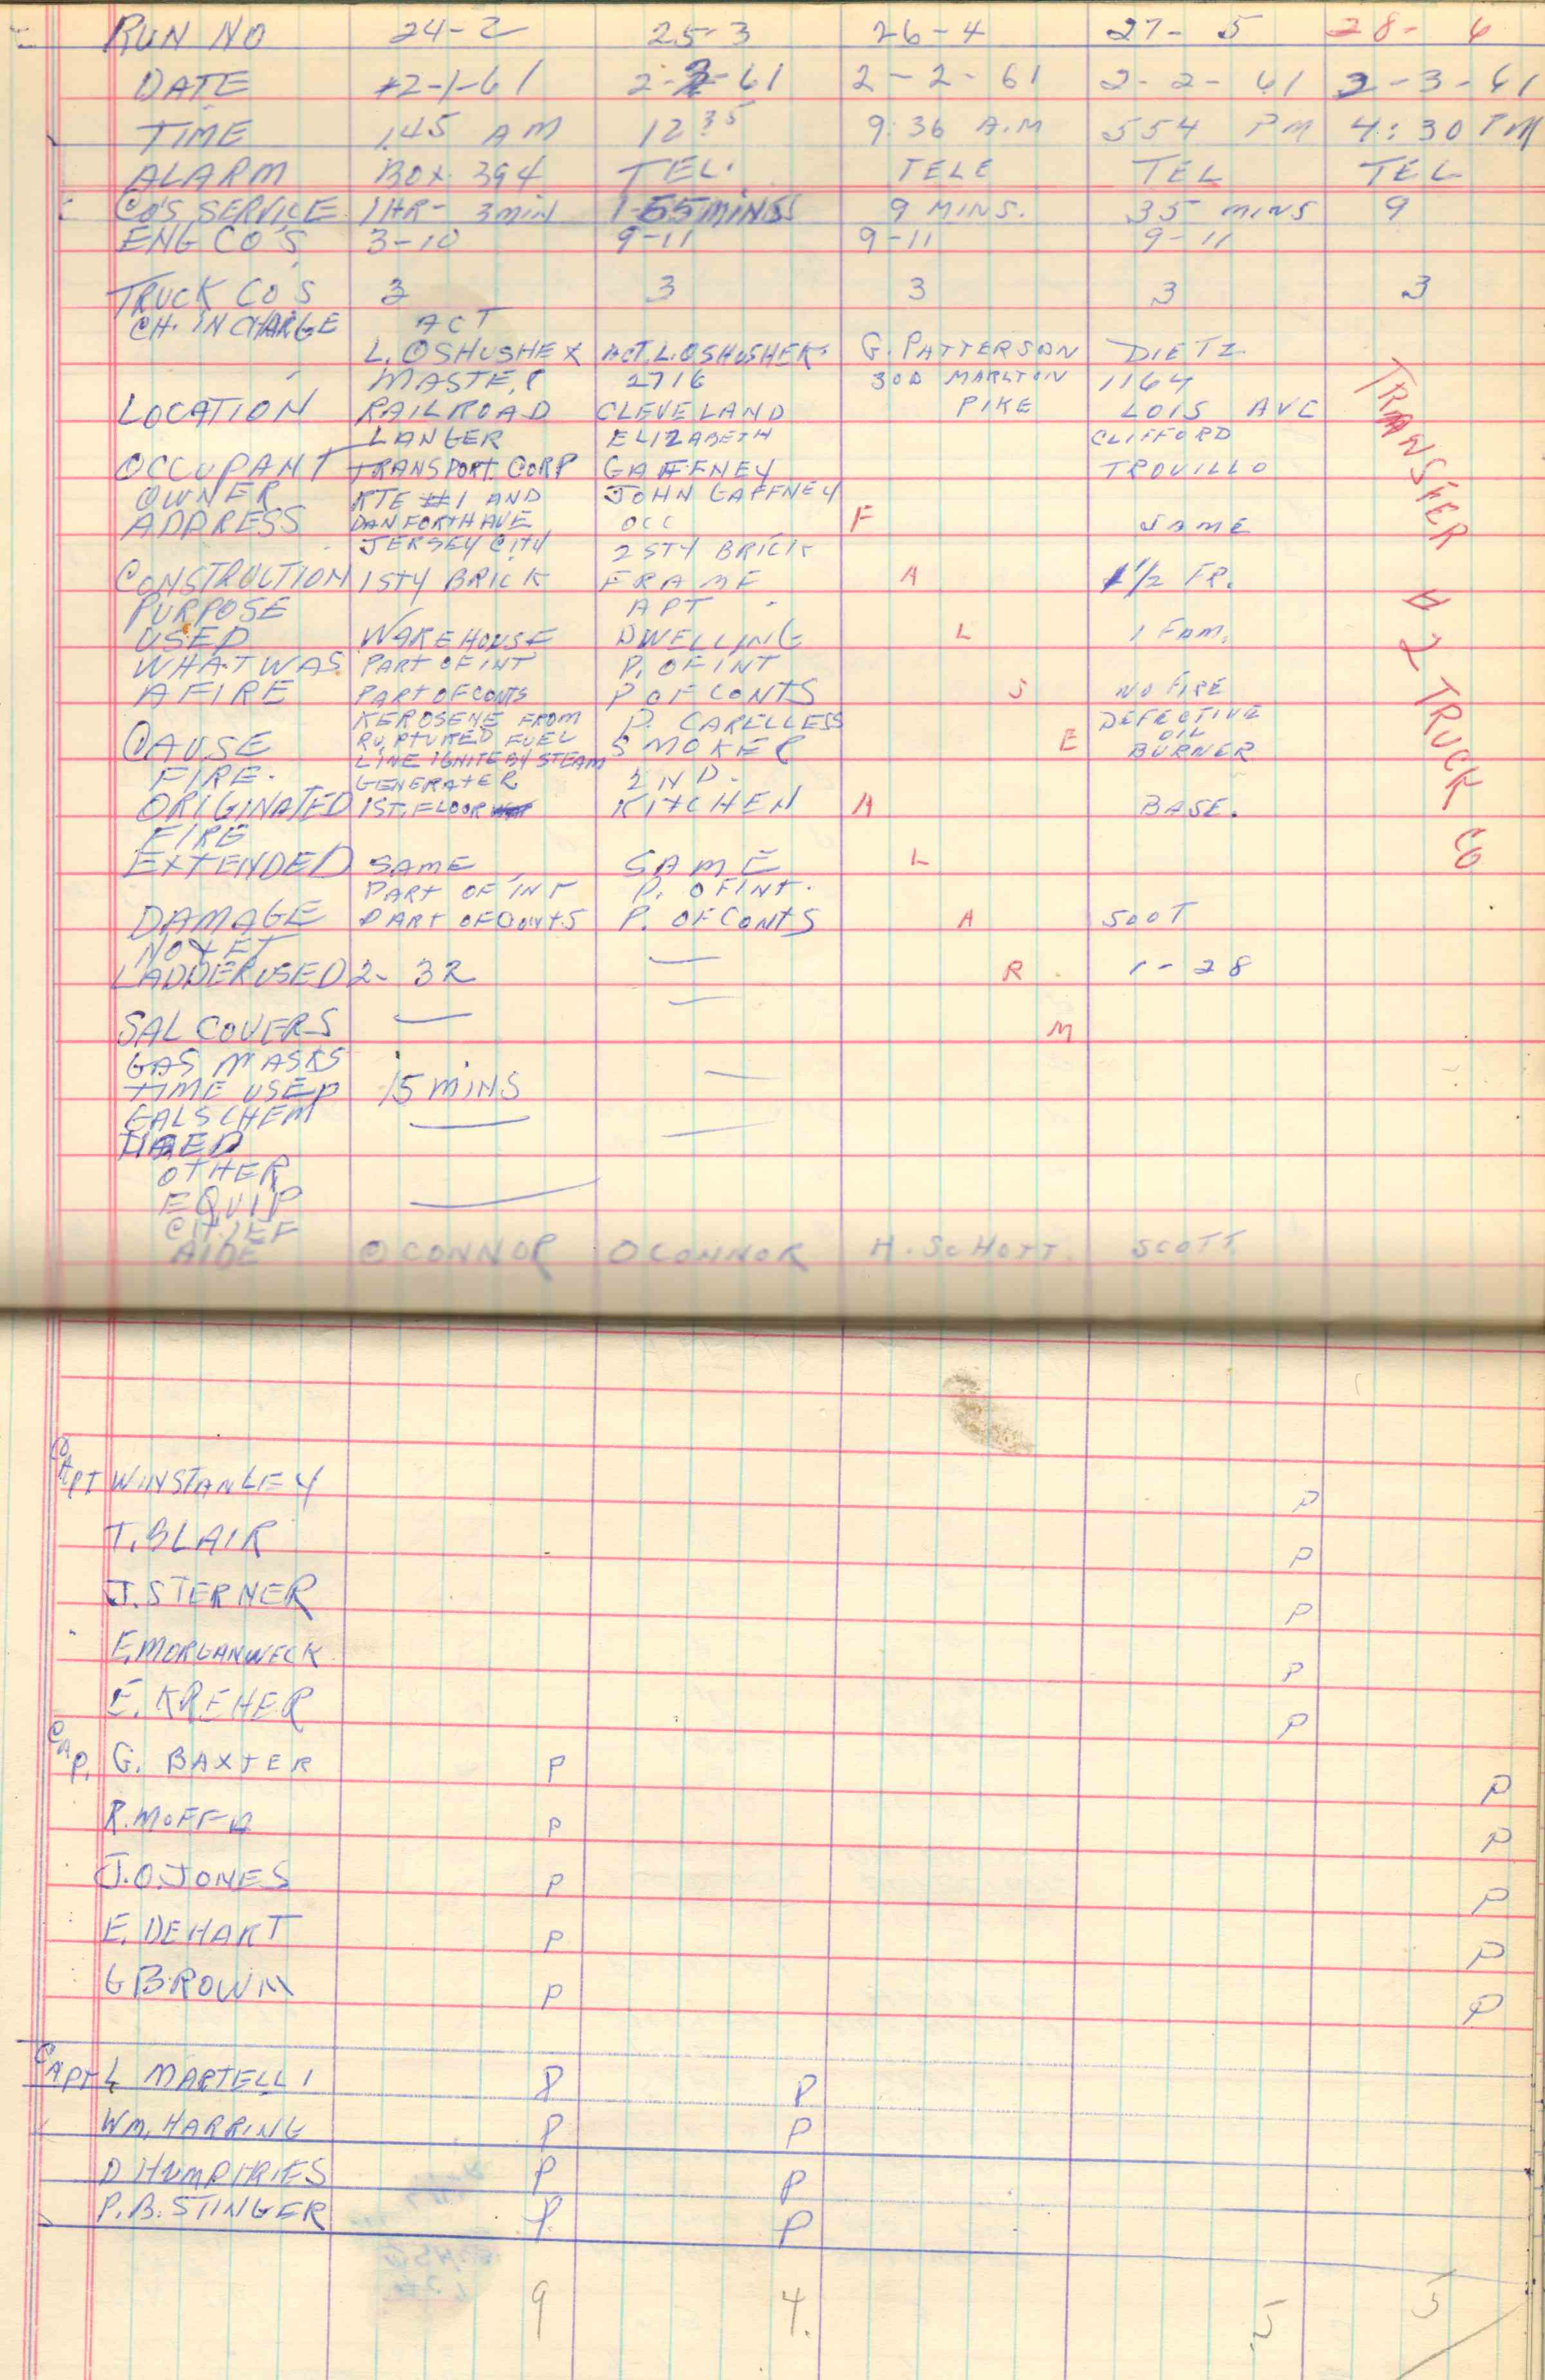 RUN NO 24-2 25-3 26-4 27- 5 28- 6
DATE 2-1-61 2-2-61 2-2-61 2-2-61 2-3-61
TIME 1.45 AM 12 35 9:36 A.M 554 PM 4:30 PM
ALARM BOX 394 TEL. TELE TEL TEL
CO'S SERVICE 1HR- 3min 1-55 MINS 9 MINS. 35 MINS 9
ENG CO'S 3-10 9-11 9-11 9-11
TRUCK CO'S 3 3 3 3 3
CH. IN CHARGE ACT
L. OSHUSHEK ACT. L. OSHUSHEK G. PATTERSON DIETZ
MASTER 2716 300 MARLTON 1164
LOCATION RAILROAD CLEVELAND PIKE LOIS AVE
LANGER ELIZABETH CLIFFORD
OCCUPANT TRANSPORT. CORP GAFFNEY TROVILLO
OWNER RTE #1 AND JOHN GAFFNEY
ADDRESS DANFORTH AVE OCC F SAME
JERSEY CITY 2 STY BRICK
CONSTRUCTION 1STY BRICK FRAME A 1 1/2 FR.
PURPOSE APT
USED WAREHOUSE DWELLING L 1 FAM.
WHAT WAS PART OF INT P. OF INT
A FIRE PART OF CONTS P OF CONTS S NO FIRE
KEROSENE FROM P. CARELLESS DEFECTIVE
CAUSE RUPTURED FUEL SMOKER E OIL
LINE IGNITE BY STEAM BURNER
FIRE. GENERATER 2ND.
ORIGINATED 1ST. FLOOR KITCHEN A BASE.
FIRE
EXTENDED SAME SAME L
PART OF INT P. OF INT.
DAMAGE PART OF CONTS P. OF CONTS A SOOT
NO & FT
LADDER USED 2- 32 — R 1-28
SAL COVERS — — M
GAS MASKS
TIME USED 15 MINS —
GALS CHEM
USED — —
OTHER
EQUIP —
CHIEF
AIDE O CONNOR O CONNOR H. SCHOTT. SCOTT
TRANSFER # 2 TRUCK CO
CAPT WINSTANLEY P
T. BLAIR P
J. STERNER P
F. MORGANWECK P
E. KREHER P
CAP. G. BAXTER P P
R. MOFFA P P
J.O. JONES P P
E. DEHART P P
G BROWN P P
CAPT L MARTELLI P P
WM. HARRING P P
D HUMPHRIES P P
P.B. STINGER P P
9 4. 5 5